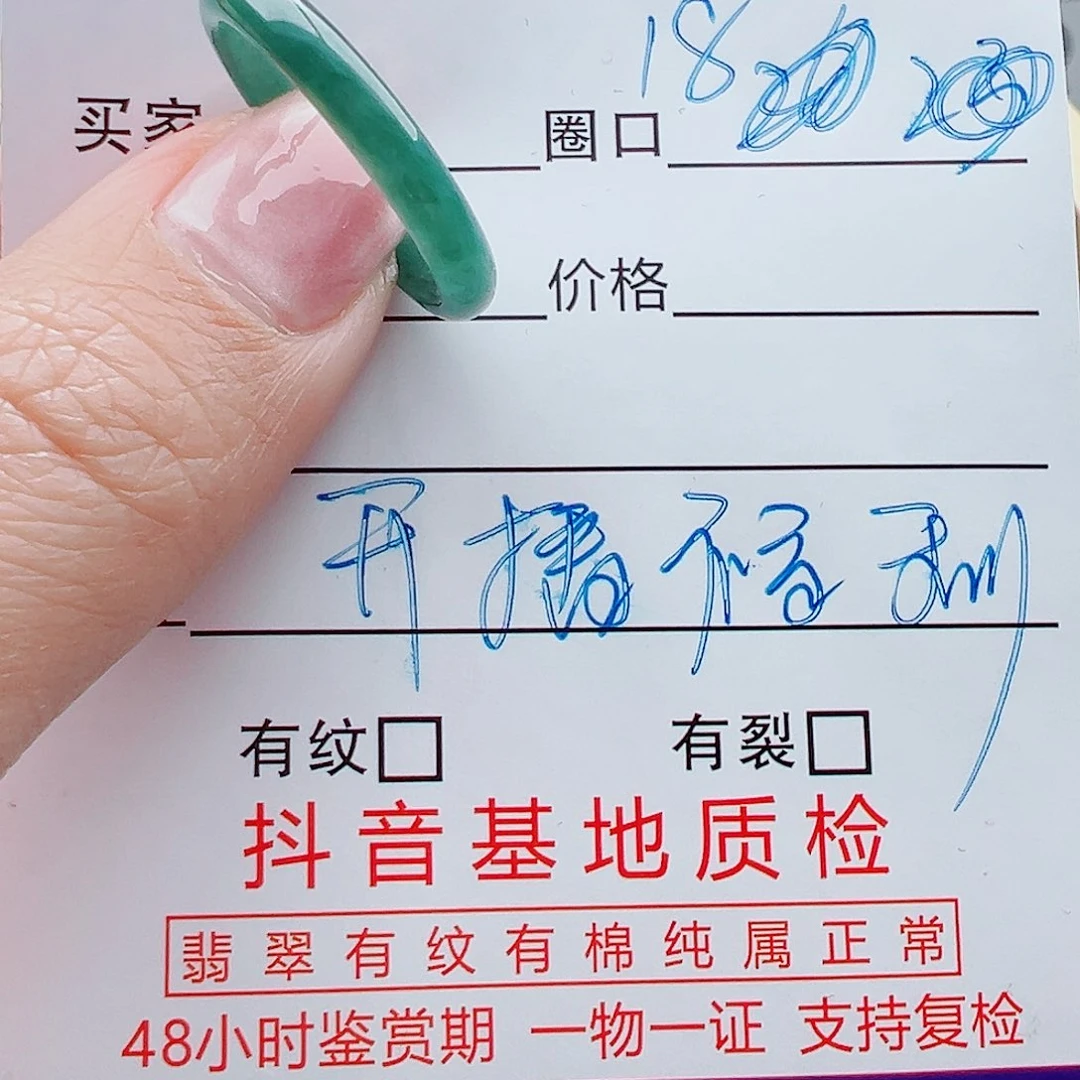 买家 圈口 18
价格
开播福利
有纹 有裂
抖音基地质检
翡翠有纹有棉纯属正常
48小时鉴赏期 一物一证 支持复检